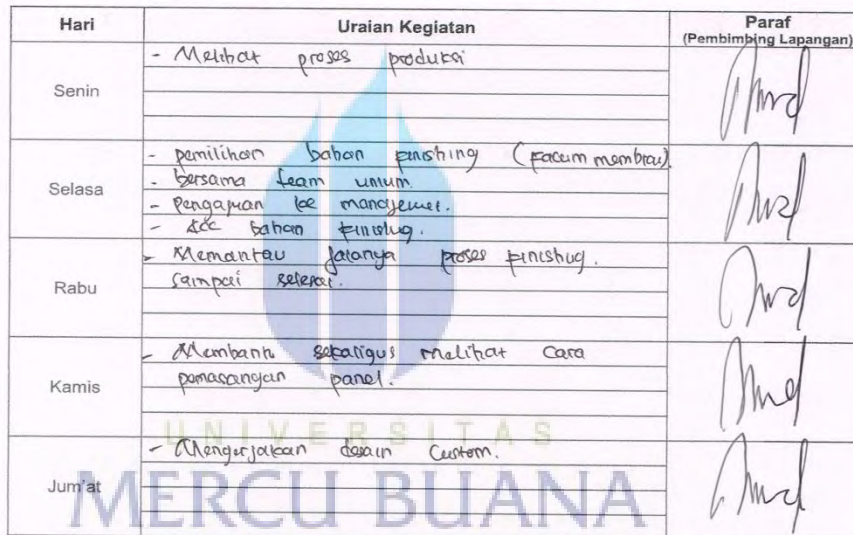 Hari Uraian Kegiatan Paraf
(Pembimbing Lapangan)
Senin
- Melihat proses produksi
Selasa
- pemilihan bahan finishing (facum membran).
- bersama team umum.
- Pengajuan ke manajemen.
- Acc bahan finishing.
Rabu
- Memantau jalanya proses finishing.
sampai selesai.
Kamis
- Membantu sekaligus melihat cara
pemasangan panel.
Jum'at
- Mengerjakan desain custom.
UNIVERSITAS
MERCU BUANA